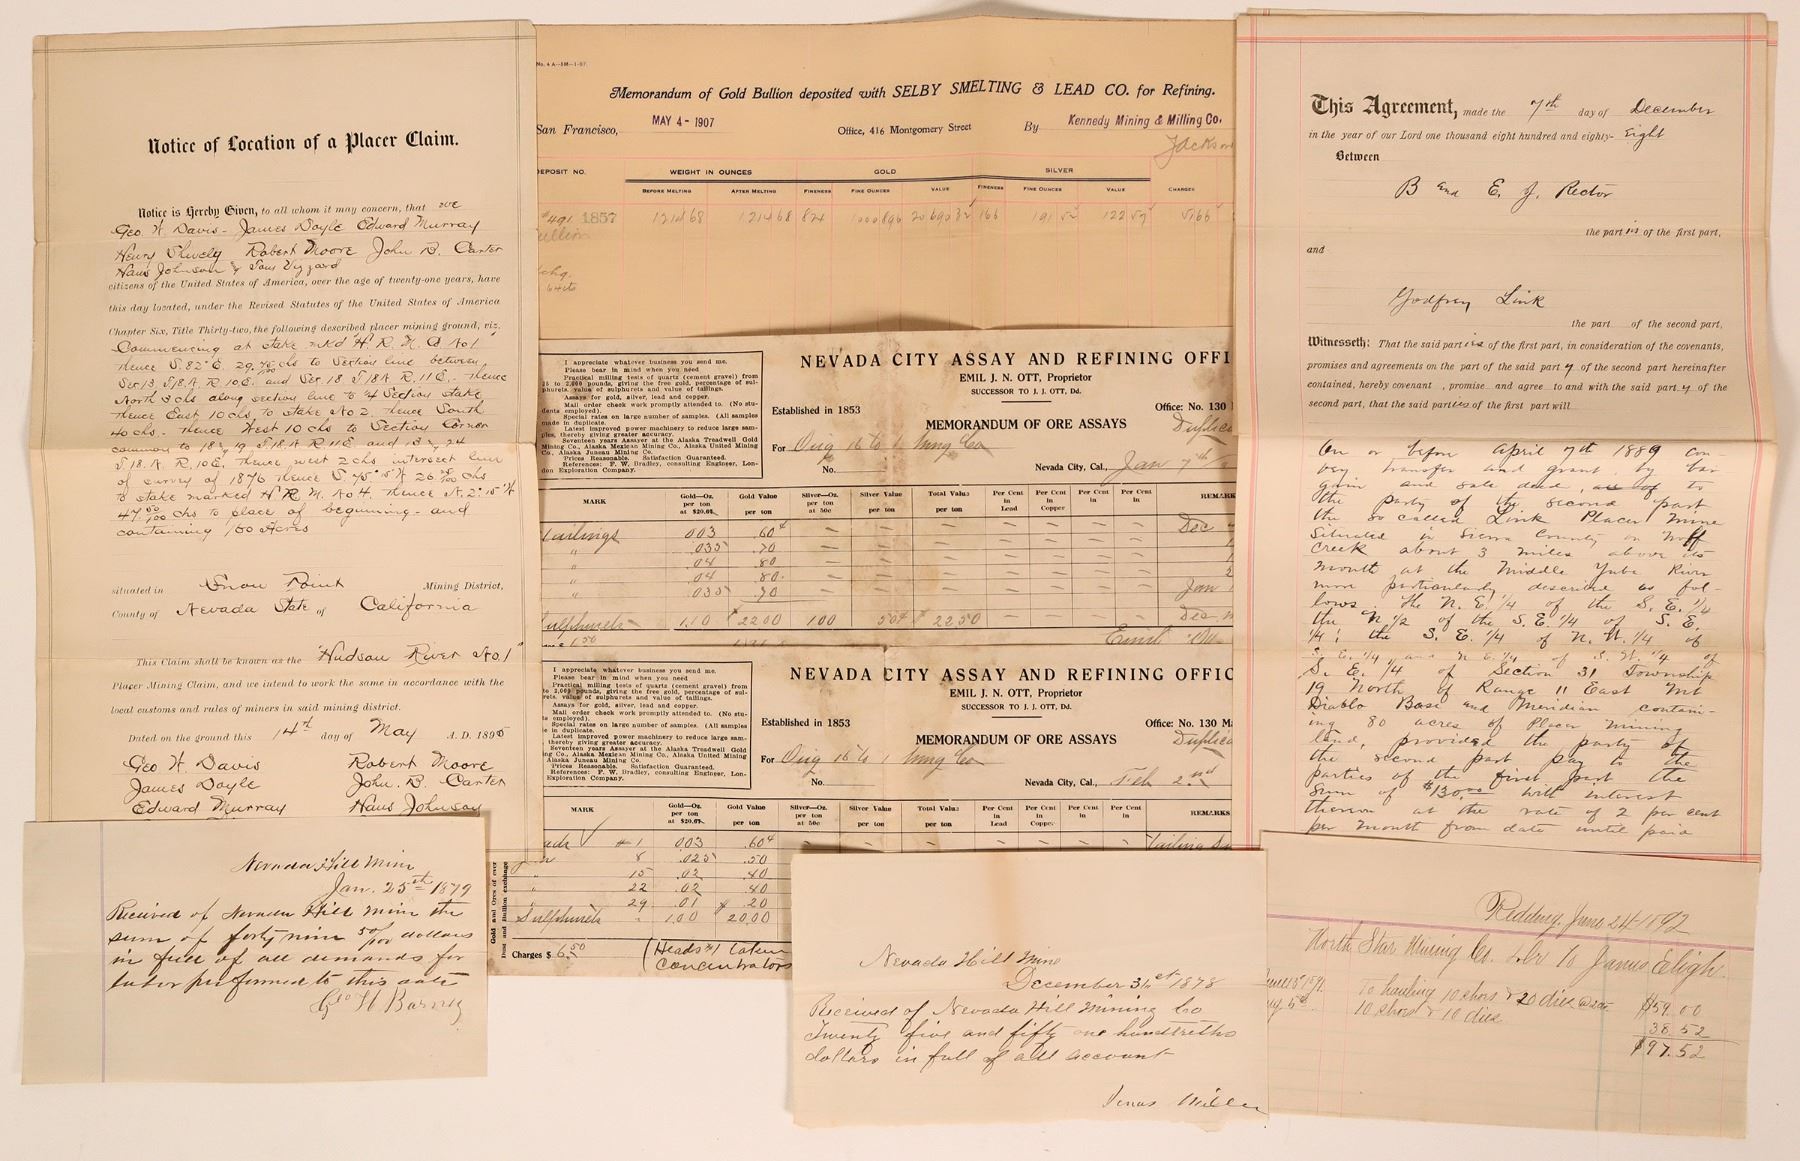 Notice of Location of a Placer Claim.
Notice is Hereby Given, to all whom it may concern, that we
Geo. H. Davis - James Doyle Edward Murray
Henry Shively Robert Moore John B. Carter
Hans Johnson &
citizens of the United States of America, over the age of twenty-one years, have
this day located, under the Revised Statutes of the United States of America
Chapter Six, Title Thirty-two, the following described placer mining ground, viz:
Commencing at stake mkd H. R. M. No 1
thence S. 82° E. 29 chs to Section line between
Sec 13 T 18 N. R. 10 E. and Sec. 18 T 18 N R. 11 E. thence
North 3 chs along section line to 1/4 Section stake
thence East 10 chs to stake No 2. thence South
40 chs. thence West 10 chs to Section Corner
common to 18 & 19 T 18 N R 11 E and 13 & 24
T 18. N. R. 10 E. thence west 2 chs intersect line
of survey of 1876 thence S. 75° 15' W 26 chs
to stake marked H R M. No 4. thence N. 2° 15' W
47 50/100 chs to place of beginning - and
containing 160 Acres
situated in Snow Point Mining District,
County of Nevada State of California
This Claim shall be known as the "Hudson River No. 1"
Placer Mining Claim, and we intend to work the same in accordance with the
local customs and rules of miners in said mining district.
Dated on the ground this 14th day of May A. D. 1895
Geo H. Davis Robert Moore
James Doyle John. B. Carter
Edward Murray Hans Johnson
No. 4 A--5M--1-07
Memorandum of Gold Bullion deposited with SELBY SMELTING & LEAD CO. for Refining.
San Francisco, MAY 4 - 1907 Office, 416 Montgomery Street By Kennedy Mining & Milling Co.
Jackson
DEPOSIT NO. WEIGHT IN OUNCES GOLD SILVER
BEFORE MELTING AFTER MELTING FINENESS FINE OUNCES VALUE FINENESS FINE OUNCES VALUE CHARGES
#491 1857 1214 68 1214 68 824 1000.896 20690 166 191 122
Bullion
chg.
I appreciate whatever business you send me.
Please bear in mind when you need
Practical milling tests of quartz (cement gravel) from
25 to 2,000 pounds, giving the free gold, percentage of sul-
phurets, value of sulphurets and value of tailings.
Assays for gold, silver, lead and copper.
Mail order check work promptly attended to. (No stu-
dents employed).
Special rates on large number of samples. (All samples
made in duplicate.
Latest improved power machinery to reduce large sam-
ples, thereby giving greater accuracy.
Seventeen years Assayer at the Alaska Treadwell Gold
Mining Co., Alaska Mexican Mining Co., Alaska United Mining
Co., Alaska Juneau Mining Co.
Prices Reasonable. Satisfaction Guaranteed.
References: F. W. Bradley, consulting Engineer, Lon-
don Exploration Company.
NEVADA CITY ASSAY AND REFINING OFFI
EMIL J. N. OTT, Proprietor
SUCCESSOR TO J. J. OTT, Dd.
Established in 1853 Office: No. 130
MEMORANDUM OF ORE ASSAYS Duplica
For Orig 16 to 1 Mng Co
No. Nevada City, Cal., Jan 7th
MARK Gold—Oz. per ton at $20.67 Gold Value per ton Silver—Oz. per ton at 50c Silver Value per ton Total Value per ton Per Cent in Lead Per Cent in Copper Per Cent in Per Cent in REMARK
Tailings .003 .60¢ — — — — — — — Dec
" .035 .70 — — — — — — —
" .04 .80 — — — — — — —
" .04 .80 — — — — — — —
" .035 .70 — — — — — — — Jan
Sulphurets 1.10 $22.00 1.00 50¢ $22.50 Dec
I appreciate whatever business you send me.
Please bear in mind when you need
Practical milling tests of quartz (cement gravel) from
to 2,000 pounds, giving the free gold, percentage of sul-
rets, value of sulphurets and value of tailings.
Assays for gold, silver, lead and copper.
Mail order check work promptly attended to. (No stu-
ts employed).
Special rates on large number of samples. (All samples
e in duplicate.
Latest improved power machinery to reduce large sam-
thereby giving greater accuracy.
Seventeen years Assayer at the Alaska Treadwell Gold
ing Co., Alaska Mexican Mining Co., Alaska United Mining
Alaska Juneau Mining Co.
Prices Reasonable. Satisfaction Guaranteed.
References: F. W. Bradley, consulting Engineer, Lon-
Exploration Company.
NEVADA CITY ASSAY AND REFINING OFFIC
EMIL J. N. OTT, Proprietor
SUCCESSOR TO J. J. OTT, Dd.
Established in 1853 Office: No. 130 M
MEMORANDUM OF ORE ASSAYS Duplica
For Orig 16 to 1 Mng Co
No. Nevada City, Cal., Feb 2nd
MARK Gold—Oz. per ton at $20.67 Gold Value per ton Silver—Oz. per ton at 50c Silver Value per ton Total Value per ton Per Cent in Lead Per Cent in Copper Per Cent in Per Cent in REMARKS
#1 .003 .60¢
8 .025 .50
15 .02 .40
22 .02 .40
29 .01 $.20
Sulphurets 1.00 20.00
Charges $6.50 (Heads #1 taken
concentrators
Gold and Ores of ever
Dust and Bullion exchange
This Agreement, made the 7th day of December
in the year of our Lord one thousand eight hundred and eighty- Eight
Between
B and E. J. Rector
the parties of the first part,
and
Godfrey Link
the part of the second part,
Witnesseth: That the said parties of the first part, in consideration of the covenants,
promises and agreements on the part of the said party of the second part hereinafter
contained, hereby covenant , promise and agree to and with the said party of the
second part, that the said parties of the first part will
On or before April 7th 1889 con-
vey transfer and grant by bar
gain and sale deed, to
the party of the second part
the so called Link Placer Mine
Situated in Sierra County on Wolf
Creek about 3 miles above its
mouth at the Middle Yuba River
more particularly described as fol-
lows. The N. E. 1/4 of the S. E. 1/4
the N 1/2 of the S. E. 1/4 of S. E.
1/4; the S. E. 1/4 of N. W. 1/4 of
S. E. 1/4 and N. E. 1/4 of S. W. 1/4 of
S. E. 1/4 of Section 31 Township
19 North of Range 11 East Mt
Diablo Base and Meridian contain-
ing 80 acres of Placer mining
land, provided the party of
the second part pay to the
parties of the first part the
sum of $130.00 with interest
thereon at the rate of 2 per cent
per month from date until paid
Nevada Hill Mine
Jan. 25th 1879
Received of Nevada Hill Mine the
sum of forty nine 50/100 dollars
in full of all demands for
labor preformed to this date
Geo H Barney
Nevada Hill Mine
December 31st 1878
Received of Nevada Hill Mining Co
Twenty five and fifty one hundreths
dollars in full of all account
Jonas Miller
Redding. June 24. 1892
North Star Mining Co. Dr to James Eligh.
To hauling 10 shoes & 20 dies $59.00
10 shoes & 10 dies 38.52
$97.52